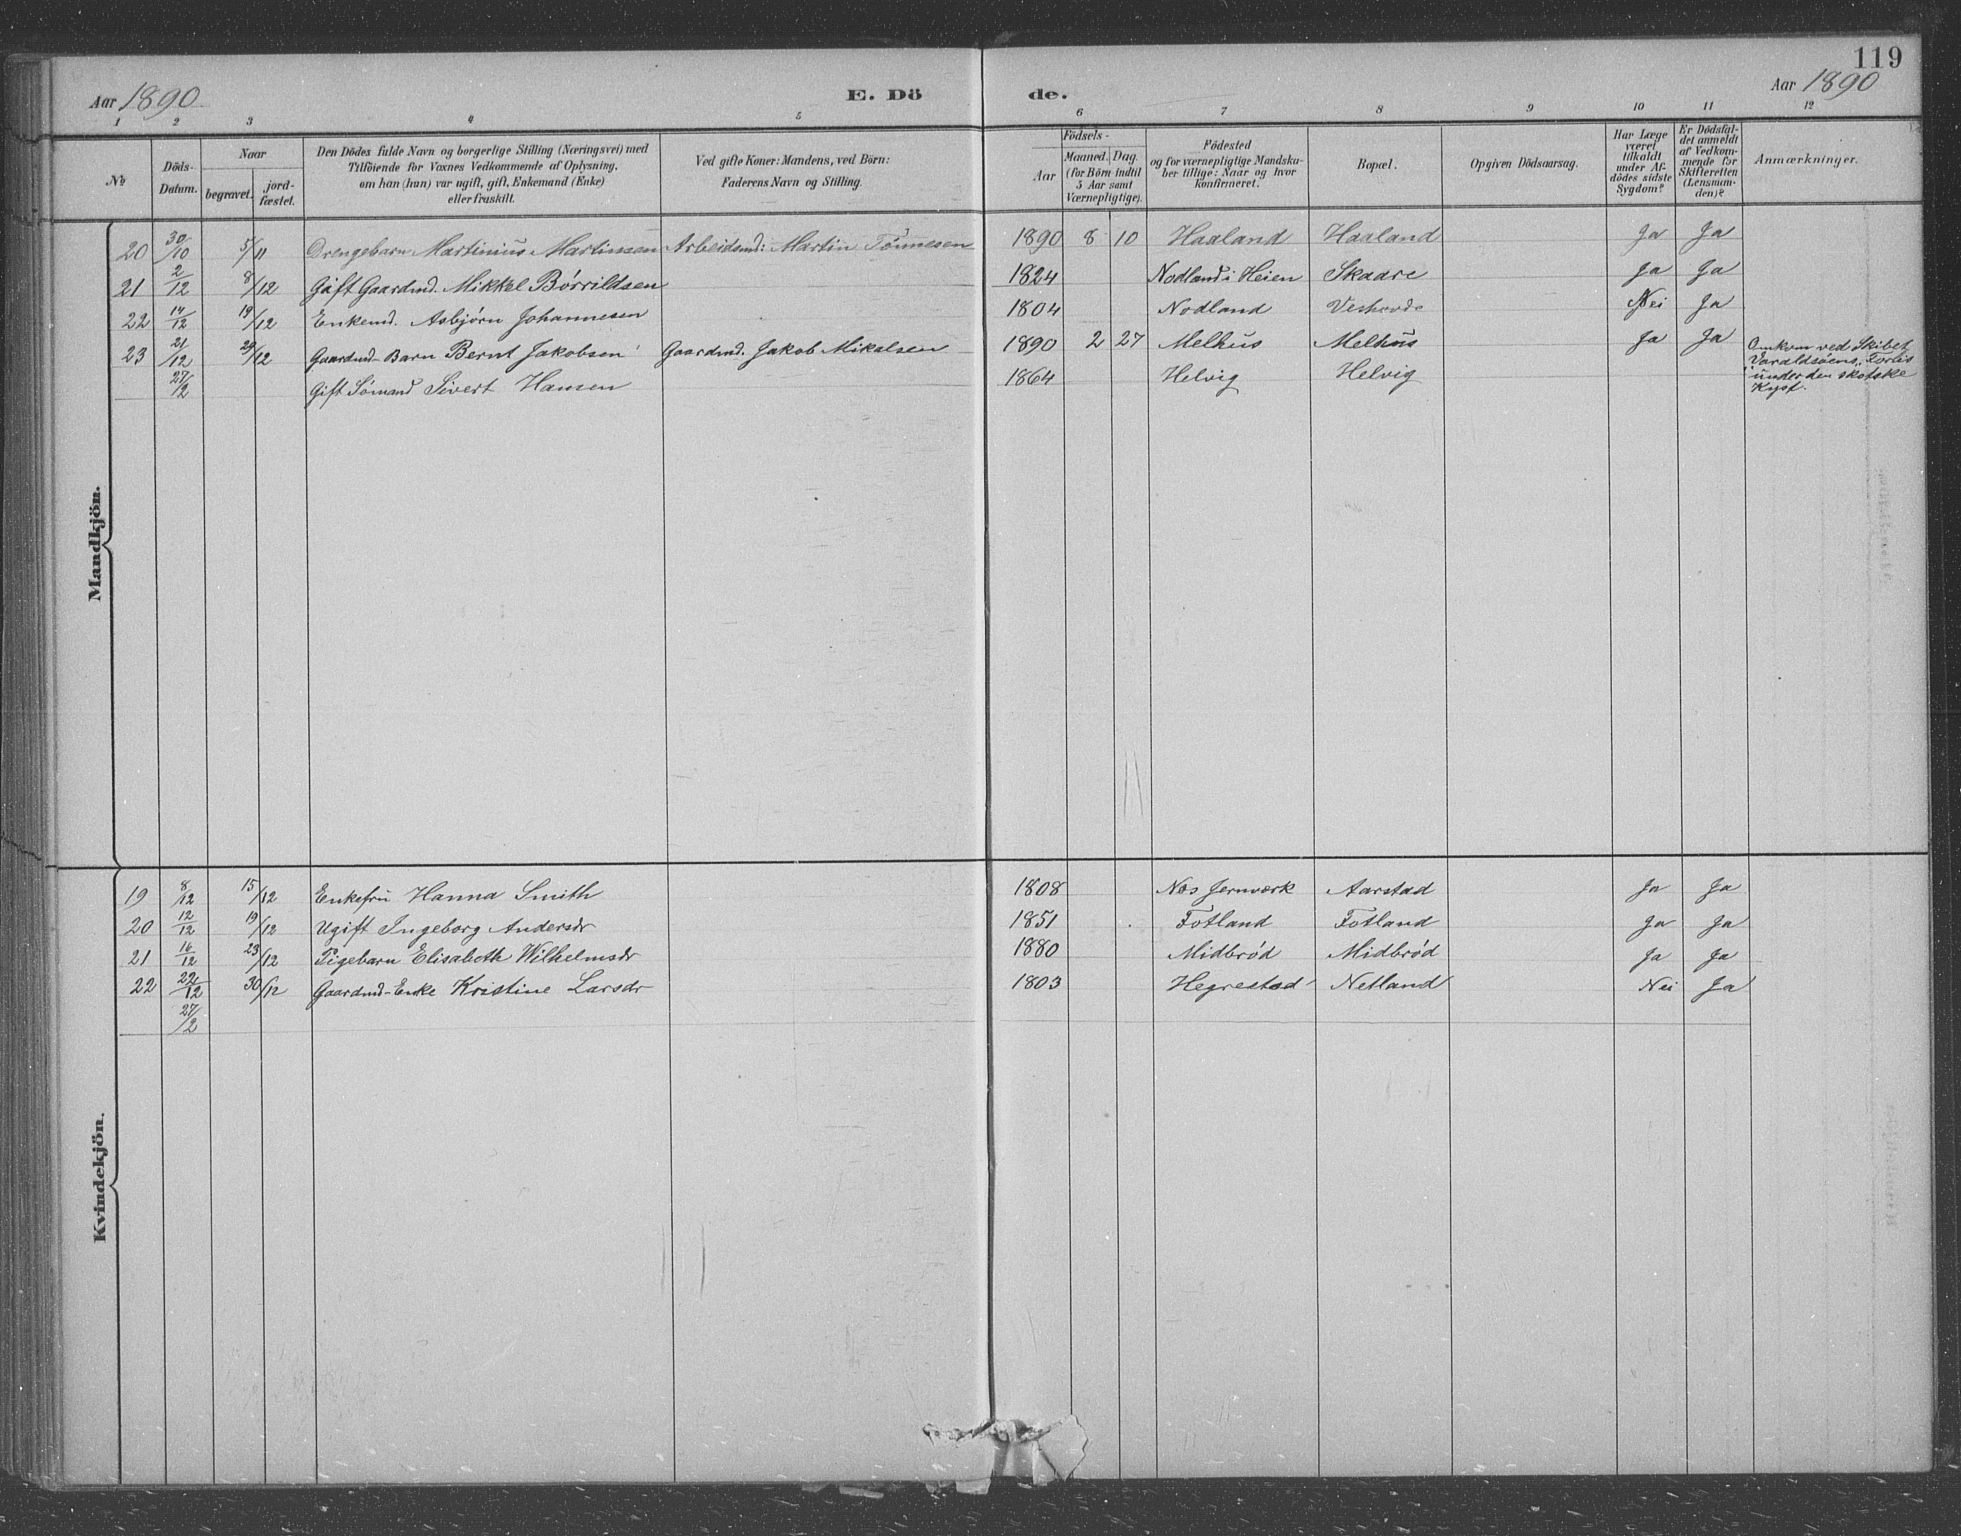 119
Aar 1890 E. Dö de. Aar 1890
1 2 3 4 5 6 7 8 9 10 11 12
№ Döds-Datum. Naar begravet. jordfæstet. Den Dödes fulde Navn og borgerlige Stilling (Næringsvei) med Tilföiende for Voxnes Vedkommende af Oplysning, om han (hun) var ugift, gift, Enkemand (Enke) eller fraskilt. Ved gifte Koner: Mandens, ved Börn: Faderens Navn og Stilling. Födsels- Aar Maaned. Dag. (for Börn indtil 5 Aar samt Værnepligtige). Födested og for værnepligtige Mandskaber tillige: Naar og hvor konfirmeret. Bopæl. Opgiven Dödsaarsag. Har Læge været tilkaldt under Afdödes sidste Sygdom? Er Dödsfaldet anmeldt af Vedkommende for Skifteretten (Lensmanden)? Anmærkninger.
Mandkjön.
20 30/10 5/11 Drengebarn Martinius Martinssen Arbeidsmd: Martin Tönnesen 1890 8 10 Haaland Haaland Ja Ja
21 2/12 8/12 Gift Gaardmd. Mikkel Börrildsen 1824 Nodland i Heien Skaare Ja Ja
22 14/12 19/12 Enkemd. Asbjørn Johannesen 1804 Nodland Nei Ja
23 21/12 29/12 Gaardmd-Barn Bernt Jakobsen Gaardmd. Jakob Mikalsen 1890 2 27 Melhus Melhus Ja Ja
27/2 Gift Sømand Sivert Hansen 1864 Helvig Helvig Omkom ved Skibet
"Varaldsøens" Forlis
under den skotske
Kyst.
Kvindekjön.
19 8/12 15/12 Enkefru Hanna Smith 1808 Nes Jernværk Aarstad Ja Ja
20 12/12 19/12 Ugift Ingeborg Andersdr 1851 Fotland Fotland Ja Ja
21 16/12 23/12 Pigebarn Elisabeth Wilhelmsdr 1880 Midbrød Midbrød Ja Ja
22 22/12 30/12 Gaardmd-Enke Kristine Larsdr 1803 Hegrestad Netland Nei Ja
27/2